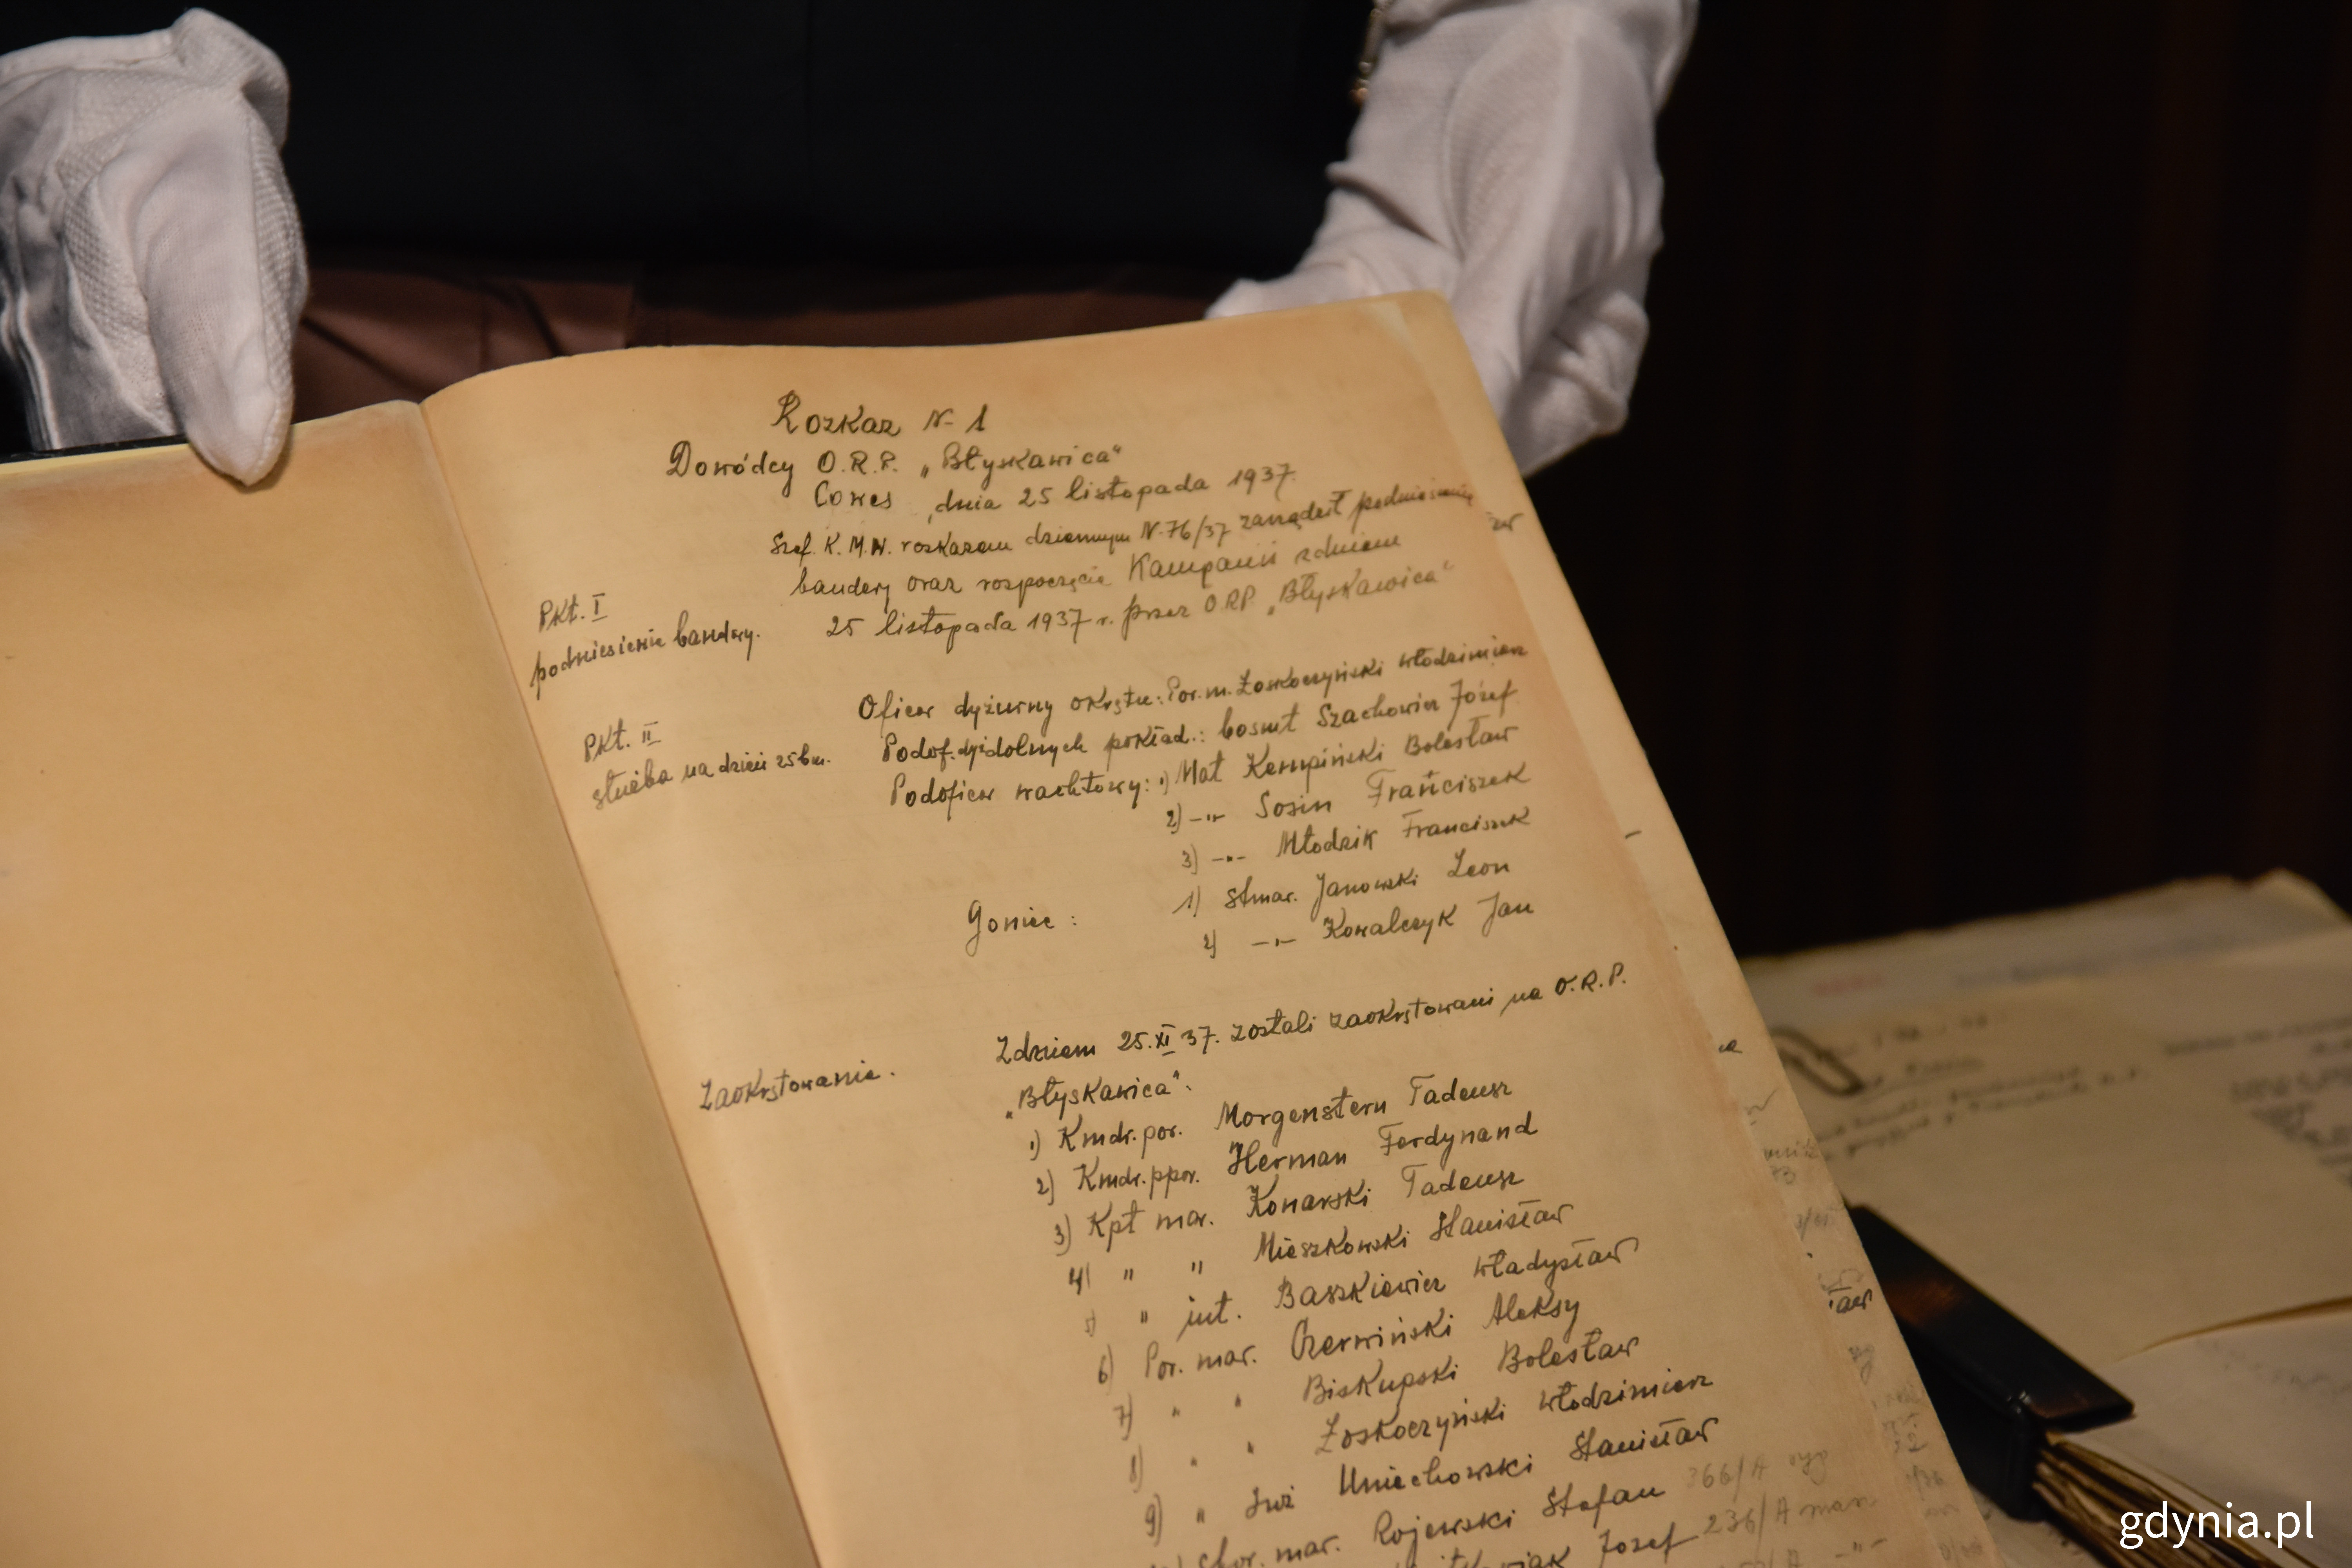 Rozkaz N-1
Dowódcy O.R.P. „Błyskawica"
Cowes, dnia 25 listopada 1937.
Szef. K.M.W. rozkazem dziennym N-76/37 zarządził podniesienie
bandery oraz rozpoczęcie Kampanii z dniem
25 listopada 1937 r. przez O.R.P. „Błyskawica"
Pkt. I
podniesienie bandery.
Pkt. II
służba na dzień 25 bm.
Oficer dyżurny okrętu: Por. m. Łoskoczyński Włodzimierz
Podof. dyż. dolnych pokład.: bosmt Szachowicz Józef
Podoficer wachtowy: 1) Mat Kempiński Bolesław
2) -"- Sosin Franciszek
3) -"- Młodzik Franciszek
Goniec: 1) stmar. Janowski Leon
2) -"- Kowalczyk Jan
Zaokrętowanie.
Z dniem 25.XI 37. zostali zaokrętowani na O.R.P.
„Błyskawica".
1) Kmdr. por. Morgenstern Tadeusz
2) Kmdr. ppor. Herman Ferdynand
3) Kpt mar. Konarski Tadeusz
4) " " Mieszkowski Stanisław
5) " int. Baszkiewicz Władysław
6) Por. mar. Czerwiński Aleksy
7) " " Biskupski Bolesław
8) " " Łoskoczyński Włodzimierz
9) " inż Uniechowski Stanisław
chor. mar. Rojewski Stefan 366/A
Józef 236/A mar
gdynia.pl